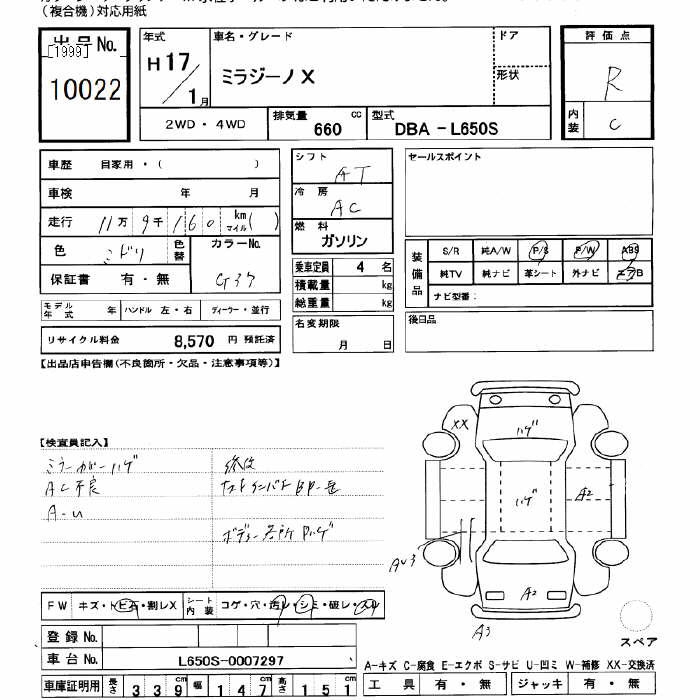 （複合機）対応用紙
出品No.
[1999]
10022
年式
H17/1月
車名・グレード
ミラジーノ X
ドア
形状
評価点
R
内装
C
2WD・4WD
排気量 660 cc
型式 DBA - L650S
車歴 自家用・（ ）
車検 年 月
走行 11万9千160 km マイル( )
色 ミドリ 色替
カラーNo.
G37
保証書 有・無
モデル年式 年 ハンドル 左・右 ディーラー・並行
リサイクル料金 8,570 円 預託済
シフト
AT
冷房
AC
燃料
ガソリン
乗車定員 4 名
積載量 kg
総重量 kg
名変期限
月 日
セールスポイント
装備品
S/R 純A/W P/S P/W ABS
純TV 純ナビ 革シート 外ナビ エアB
ナビ型番：
後日品
【出品店申告欄(不良箇所・欠品・注意事項等)】
【検査員記入】
ミラーカバーハゲ
AC不良
A-U
修復
ボディー各所 Pハゲ
XX
ハゲ
ハゲ
A2
AU3
A2
A3
スペア
FW キズ・トビ石・割レX
シート内装 コゲ・穴・汚レ・シミ・破レ・スレ
登録No.
車台No. L650S-0007297
車庫証明用 長さ 339cm 幅 147cm 高さ 151cm
A-キズ C-腐食 E-エクボ S-サビ U-凹ミ W-補修 XX-交換済
工具 有・無 ジャッキ 有・無